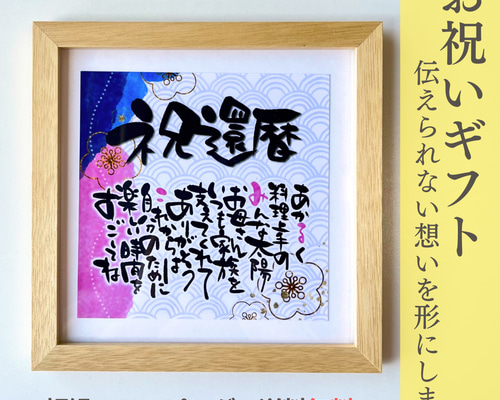 祝還暦
あかるく
料理上手の
みんなの太陽
お母さん
いつも家族を
支えてくれて
ありがとう
これからは
自分のために
楽しい時間を
すごしてね
お祝いギフト
伝えられない想いを形にしま